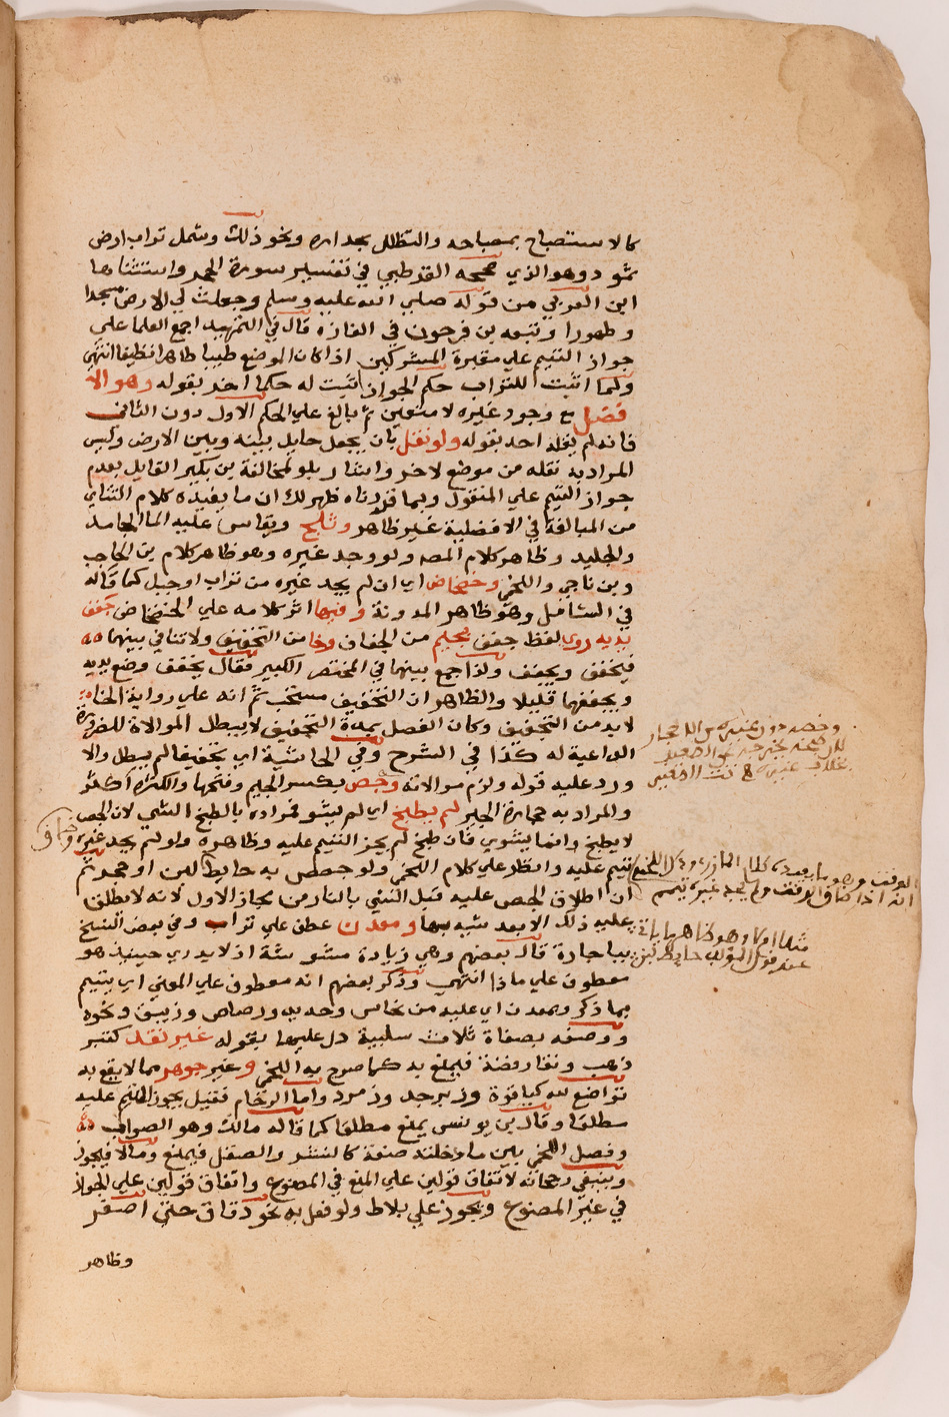 كالاستصباح بمصباحه والتظلل بجداره ونحو ذلك وشمل تراب ارض
ثمود وهو الذي صححه القرطبي في تفسير سورة الحجر واستثناها
ابن العربي من قوله صلي الله عليه وسلم وجعلت لي الارض مسجدا
وطهورا وتبعه بن فرحون في الغازه قال في التمهيد اجمع العلما علي
جواز التيمم علي مقبرة المشركين اذا كان الموضع طيبا طاهرا نظيفا انتهي
ولما اثبت للتراب حكم الجواز اثبت له حكما اخر بقوله وهو الا
فضل مع وجود غيره لا متعين ثم بالغ علي الحكم الاول دون الثاني
فانه لم يقله احد بقوله ولو نقل بان يجعل حايل بينه وبين الارض وليس
المراد به نقله من موضع لاخر واشار بلو لمخالفة بن بكير القايل بعدم
جواز التيمم علي المنقول وبما قررناه ظهر لك ان ما يفيده كلام التتاي
من المبالغة في الافضلية غير ظاهر وثلج ويقاس عليه الما الجامد
والجليد وظاهر كلام المصه ولو وجد غيره وهو ظاهر كلام بن الحاجب
وبن ناجي واللخمي وخضخاض اي ان لم يجد غيره من تراب او جبل كما قاله
في الشامل وهو ظاهر المدونة وفيها اثر كلامه علي الخضخاض جفف
يديه روي لفظ جفف بجيم من الجفاف وخا من التخفيف ولا تنافي بينهما
فيخفف ويجفف ولذا جمع بينهما في المختصر الكبير فقال يخفف وضع يديه
ويجففهما قليلا والظاهر ان التخفيف مستحب ثم انه علي رواية الخا
لابد من التجفيف وكان الفصل بمدة التجفيف لا يبطل الموالاة للضرورة
الداعية له كذا في الشرح وفي الحاشية اي تخفيفا لم يبطل والا
ورد عليه قوله ولزم موالاته وجص بكسر الجيم وفتحها والكسر اكثر
والمراد به حجارة الجير لم يطبخ اي لم يشو فمراده بالطبخ الشي لان الجص
لا يطبخ وانما يشوي فان طبخ لم يجز التيمم عليه وظاهره ولو لم يجد غيره
تيمم عليه وانظر علي كلام اللخمي ولو جصص به حايط لبن او حجر ثم
ان اطلاق الجص عليه قبل الشي بالنار من مجاز الاول لانه لا يطلق
عليه ذلك الا بعد شيه بها ومعدن عطف علي تراب وفي بعض النسخ
بباء جارة قال بعضهم وهي زيادة مشوشة اذ لا يدري حينيذ هو
معطوف علي ماذا انتهي وذكر بعضهم انه معطوف علي المعني اي يتيمم
بما ذكر وبمعدن اي عليه من نحاس وحديد ورصاص وزيبق ونحوه
ووصفه بصفاة ثلاث سلبية دل عليها بقوله غير نقد كتبر
ذهب ونقار فضة فيمنع به كما صرح به اللخمي وغير جوهر مما لا يقع به
تواضع لله كياقوة وزبرجد وزمرد واما الرخام فقيل يجوز التيمم عليه
مطلقا وقال بن يونس يمنع مطلقا كما قاله مالك وهو الصواب
وفصل اللخمي بين ما دخلته صنعة كالنشر والصقل فيمنع وما لا فيجوز
وينبغي رجحانه لاتفاق قولين علي المنع في المصنوع واتفاق قولين علي الجواز
في غير المصنوع ويجوز علي بلاط ولو فعل به نحو دقاق حتي اصفر
وظاهر